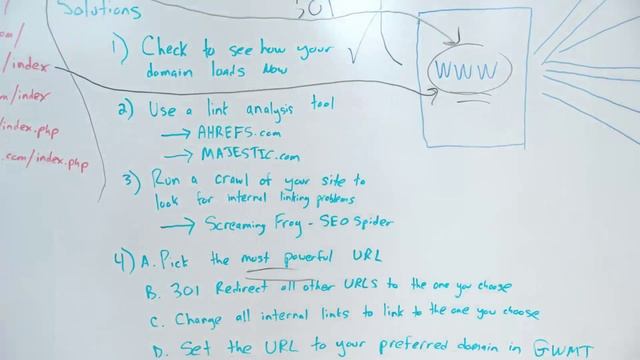 Solutions
301
om/
/index
m/index
/index.php
.com/index.php
1) Check to see how your
domain loads now
WWW
2) Use a link analysis tool
→ AHREFS.com
→ MAJESTIC.com
3) Run a crawl of your site to
look for internal linking problems
→ Screaming Frog - SEO Spider
4) A. Pick the most powerful URL
B. 301 Redirect all other URLS to the one you choose
C. Change all internal links to link to the one you choose
D. Set the URL to your preferred domain in GWMT